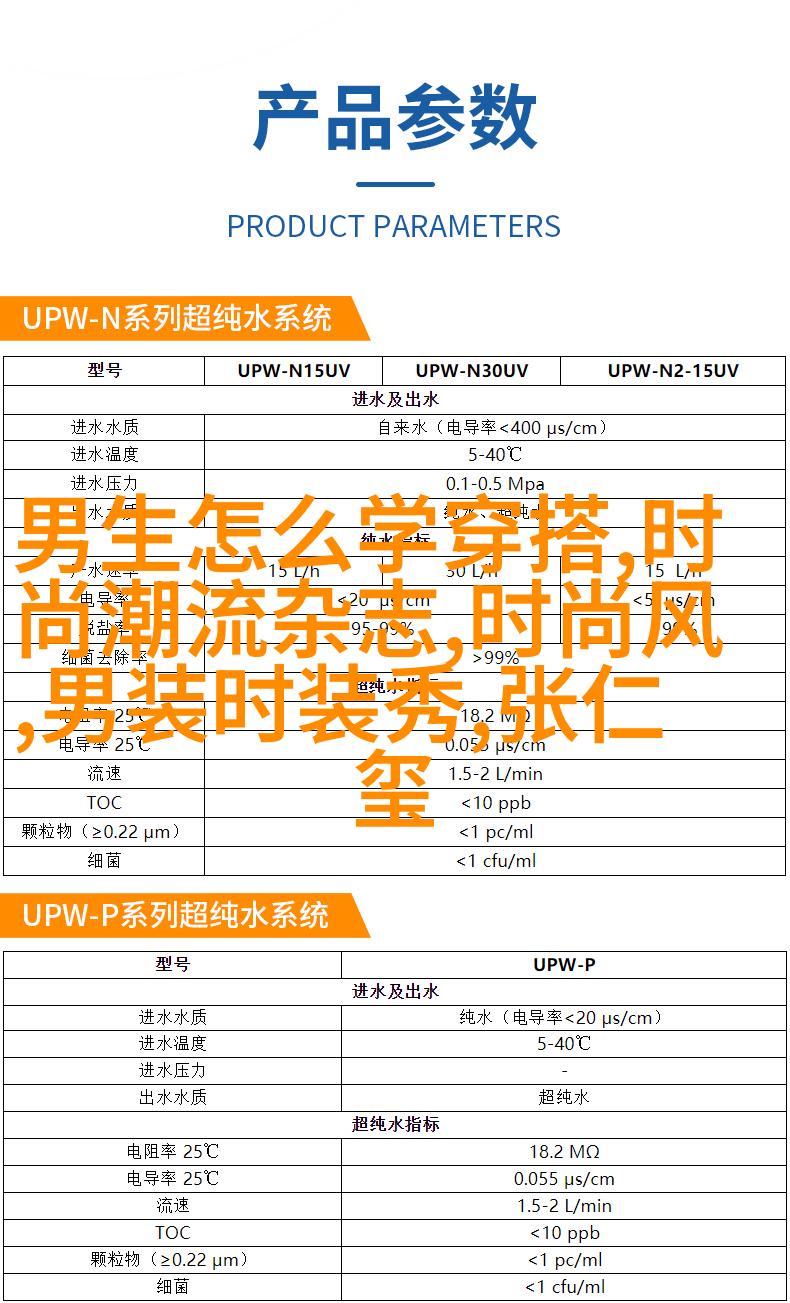 产品参数
PRODUCT PARAMETERS
UPW-N系列超纯水系统
型号 UPW-N15UV UPW-N30UV UPW-N2-15UV
进水及出水
进水水质 自来水（电导率<400 μs/cm）
进水温度 5-40℃
进水压力 0.1-0.5 Mpa
男生怎么学穿搭,时
尚潮流杂志,时尚风
,男装时装秀,张仁
玺
15 L/h 30 L/h 15 L/h
电导率 <20 μs/cm
95-99%
细菌去除率 >99%
电阻率 25℃ 18.2 MΩ
电导率 25℃ 0.055 μs/cm
流速 1.5-2 L/min
TOC <10 ppb
颗粒物（≥0.22 μm） <1 pc/ml
细菌 <1 cfu/ml
UPW-P系列超纯水系统
型号 UPW-P
进水及出水
进水水质 纯水（电导率<20 μs/cm）
进水温度 5-40℃
进水压力 -
出水水质 超纯水
超纯水指标
电阻率 25℃ 18.2 MΩ
电导率 25℃ 0.055 μs/cm
流速 1.5-2 L/min
TOC <10 ppb
颗粒物（≥0.22 μm） <1 pc/ml
细菌 <1 cfu/ml